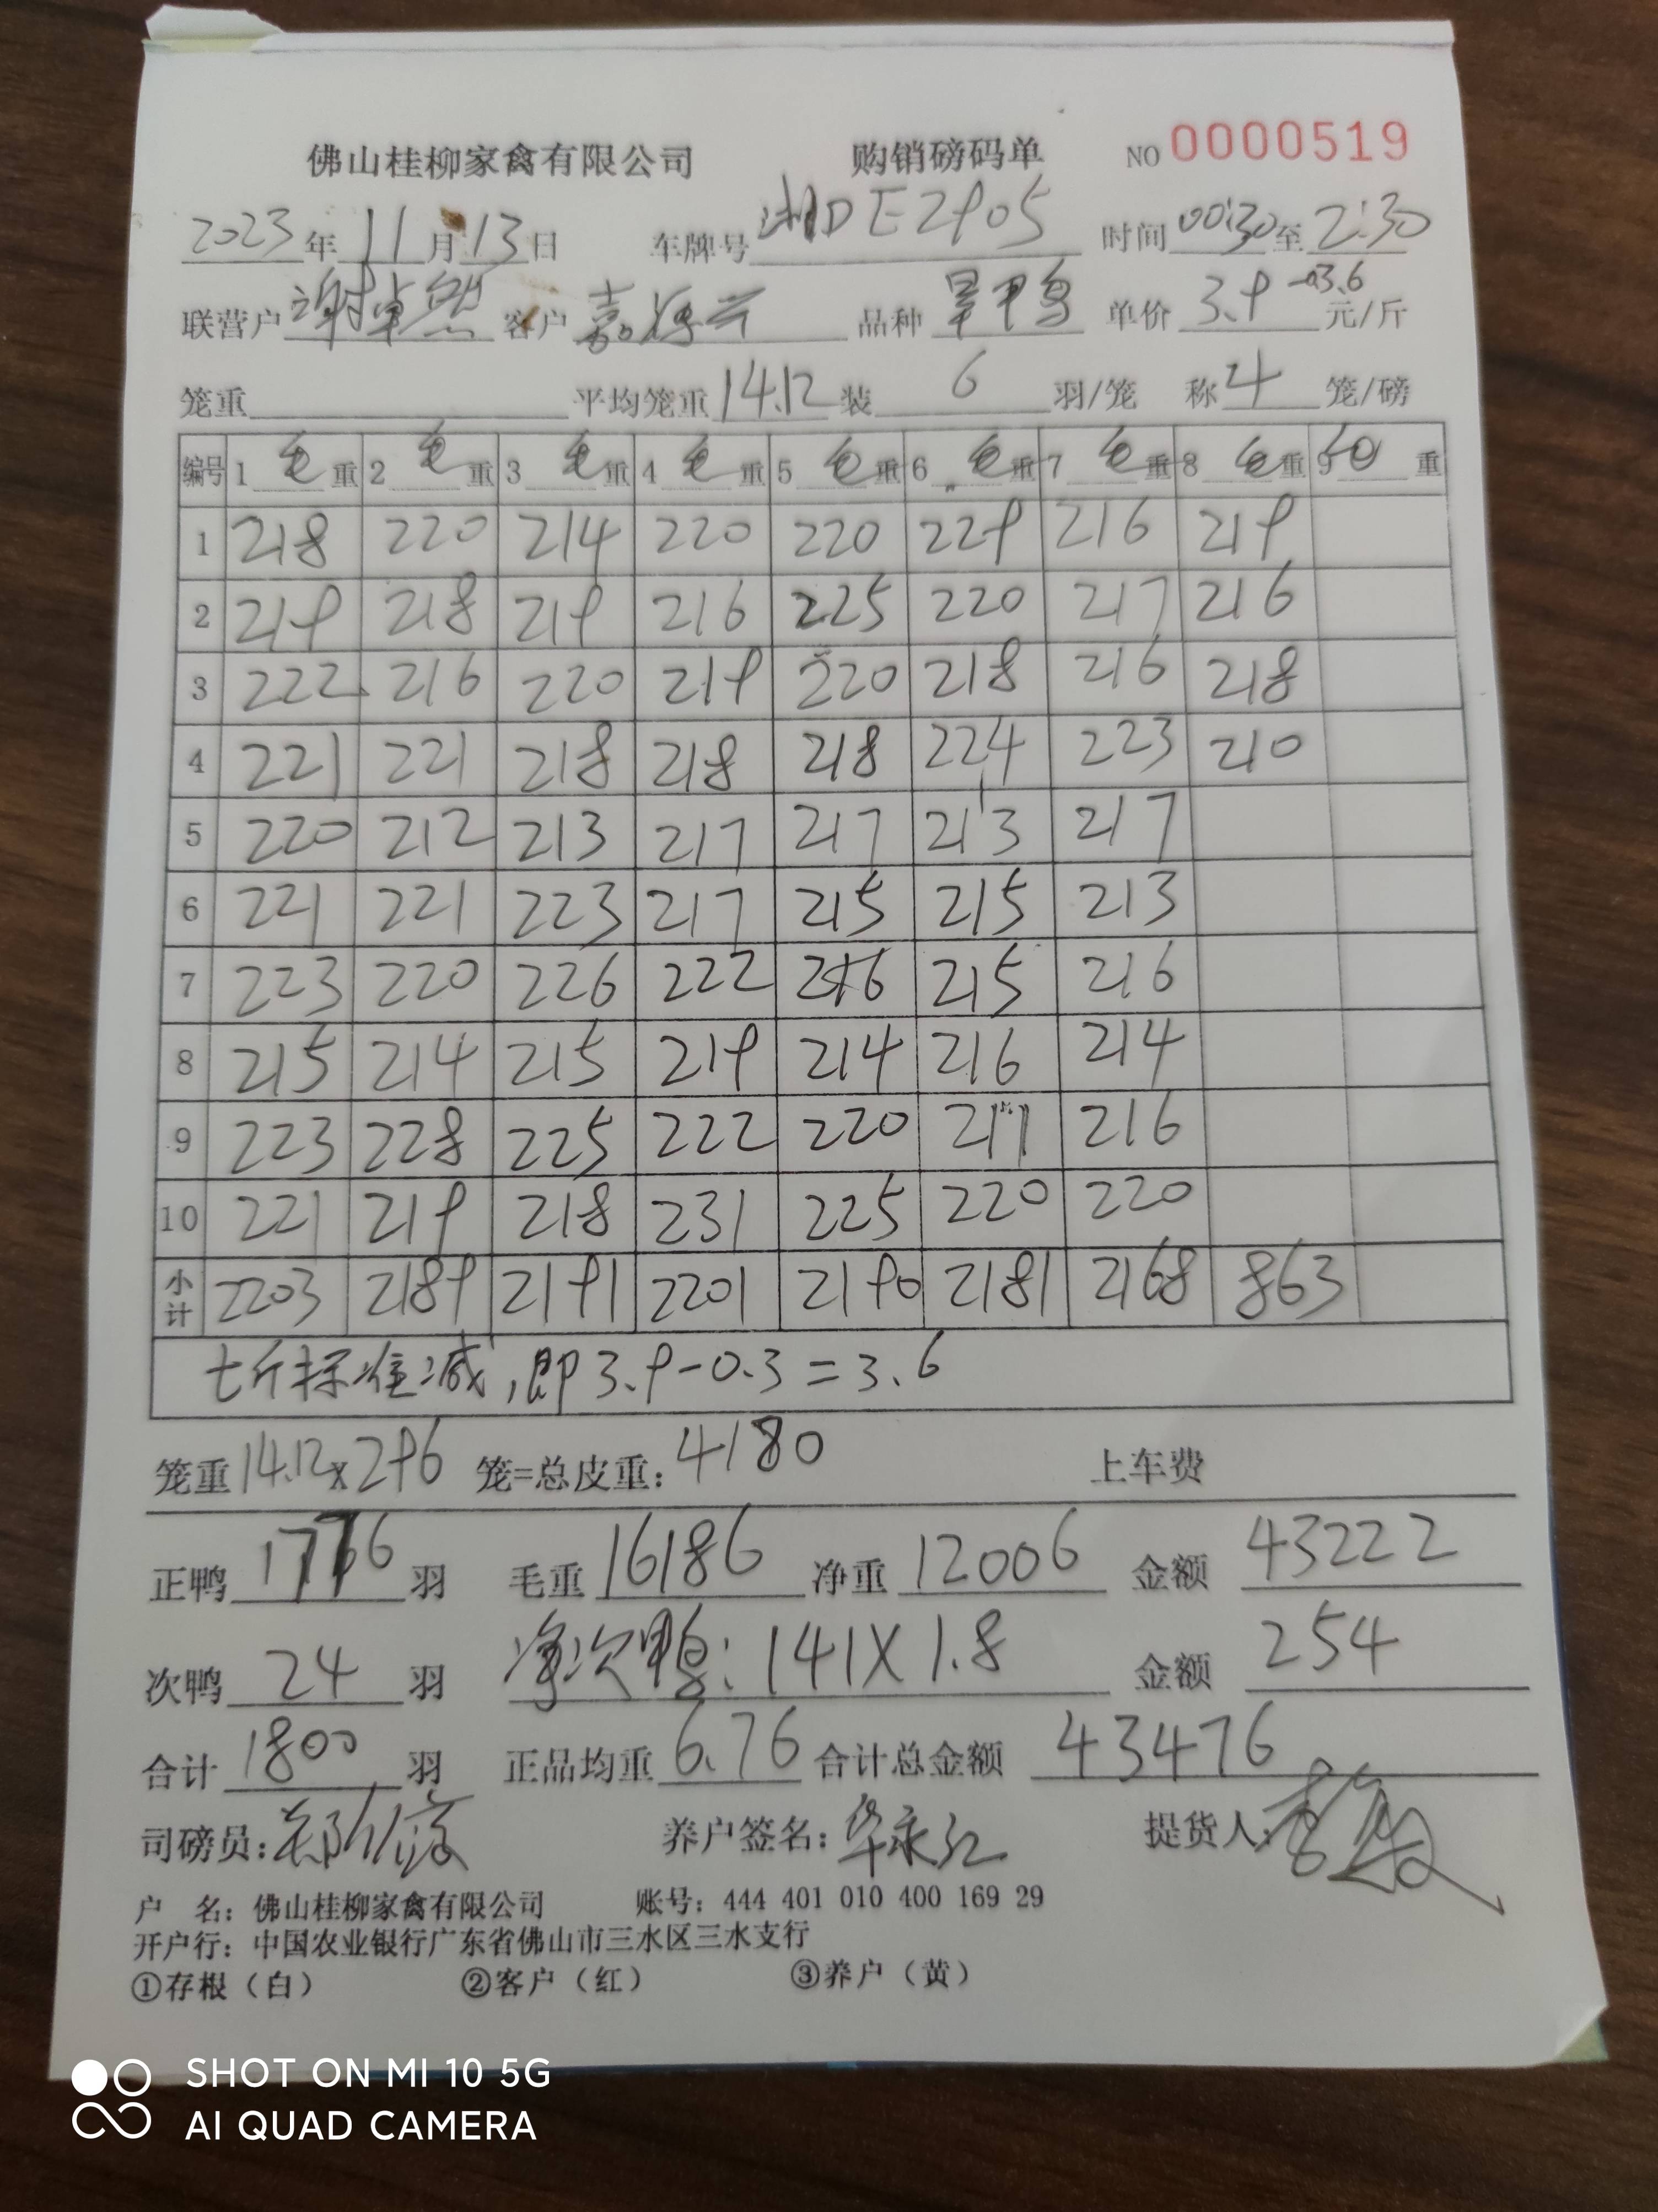 佛山桂柳家禽有限公司 购销磅码单 NO 0000519
2023年11月13日 车牌号 湘D E2905 时间 00:30 至 2:30
联营户 谢卓然 客户 品种 旱鸭 单价 3.9 -0.3 3.6 元/斤
笼重 平均笼重 14.12 装 6 羽/笼 称 4 笼/磅
编号 1 毛重 2 毛重 3 毛重 4 毛重 5 毛重 6 毛重 7 毛重 8 毛重 9 重
1 218 220 214 220 220 229 216 219
2 219 218 219 216 225 220 217 216
3 222 216 220 219 220 218 216 218
4 221 221 218 218 218 224 223 210
5 220 212 213 217 217 213 217
6 221 221 223 217 215 215 213
7 223 220 226 222 216 215 216
8 215 214 215 219 214 216 214
9 223 228 225 222 220 211 216
10 221 219 218 231 225 220 220
小计 2203 2189 2191 2201 2190 2181 2168 863
七斤标准减,即3.9-0.3=3.6
笼重 14.12 x 296 笼=总皮重: 4180 上车费
正鸭 1776 羽 毛重 16186 净重 12006 金额 43222
次鸭 24 羽 净次鸭: 141X1.8 金额 254
合计 1800 羽 正品均重 6.76 合计总金额 43476
司磅员: 养户签名: 华永江 提货人:
户 名: 佛山桂柳家禽有限公司 账号: 444 401 010 400 169 29
开户行: 中国农业银行广东省佛山市三水区三水支行
①存根（白） ②客户（红） ③养户（黄）
SHOT ON MI 10 5G
AI QUAD CAMERA